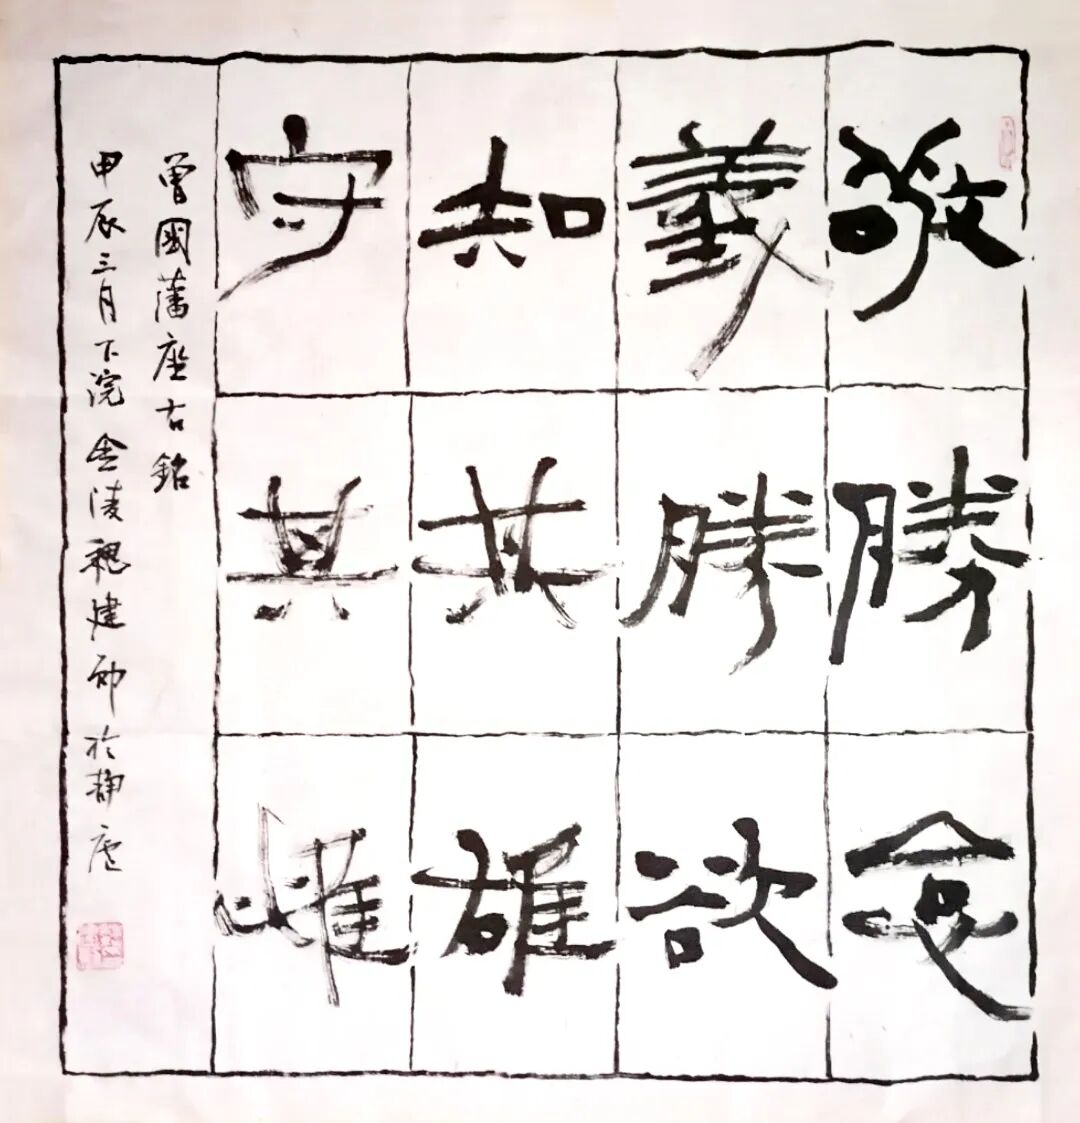 敬勝怠
義勝欲
知其雄
守其雌
曾國藩座右銘
甲辰三月下浣金陵建於靜廬